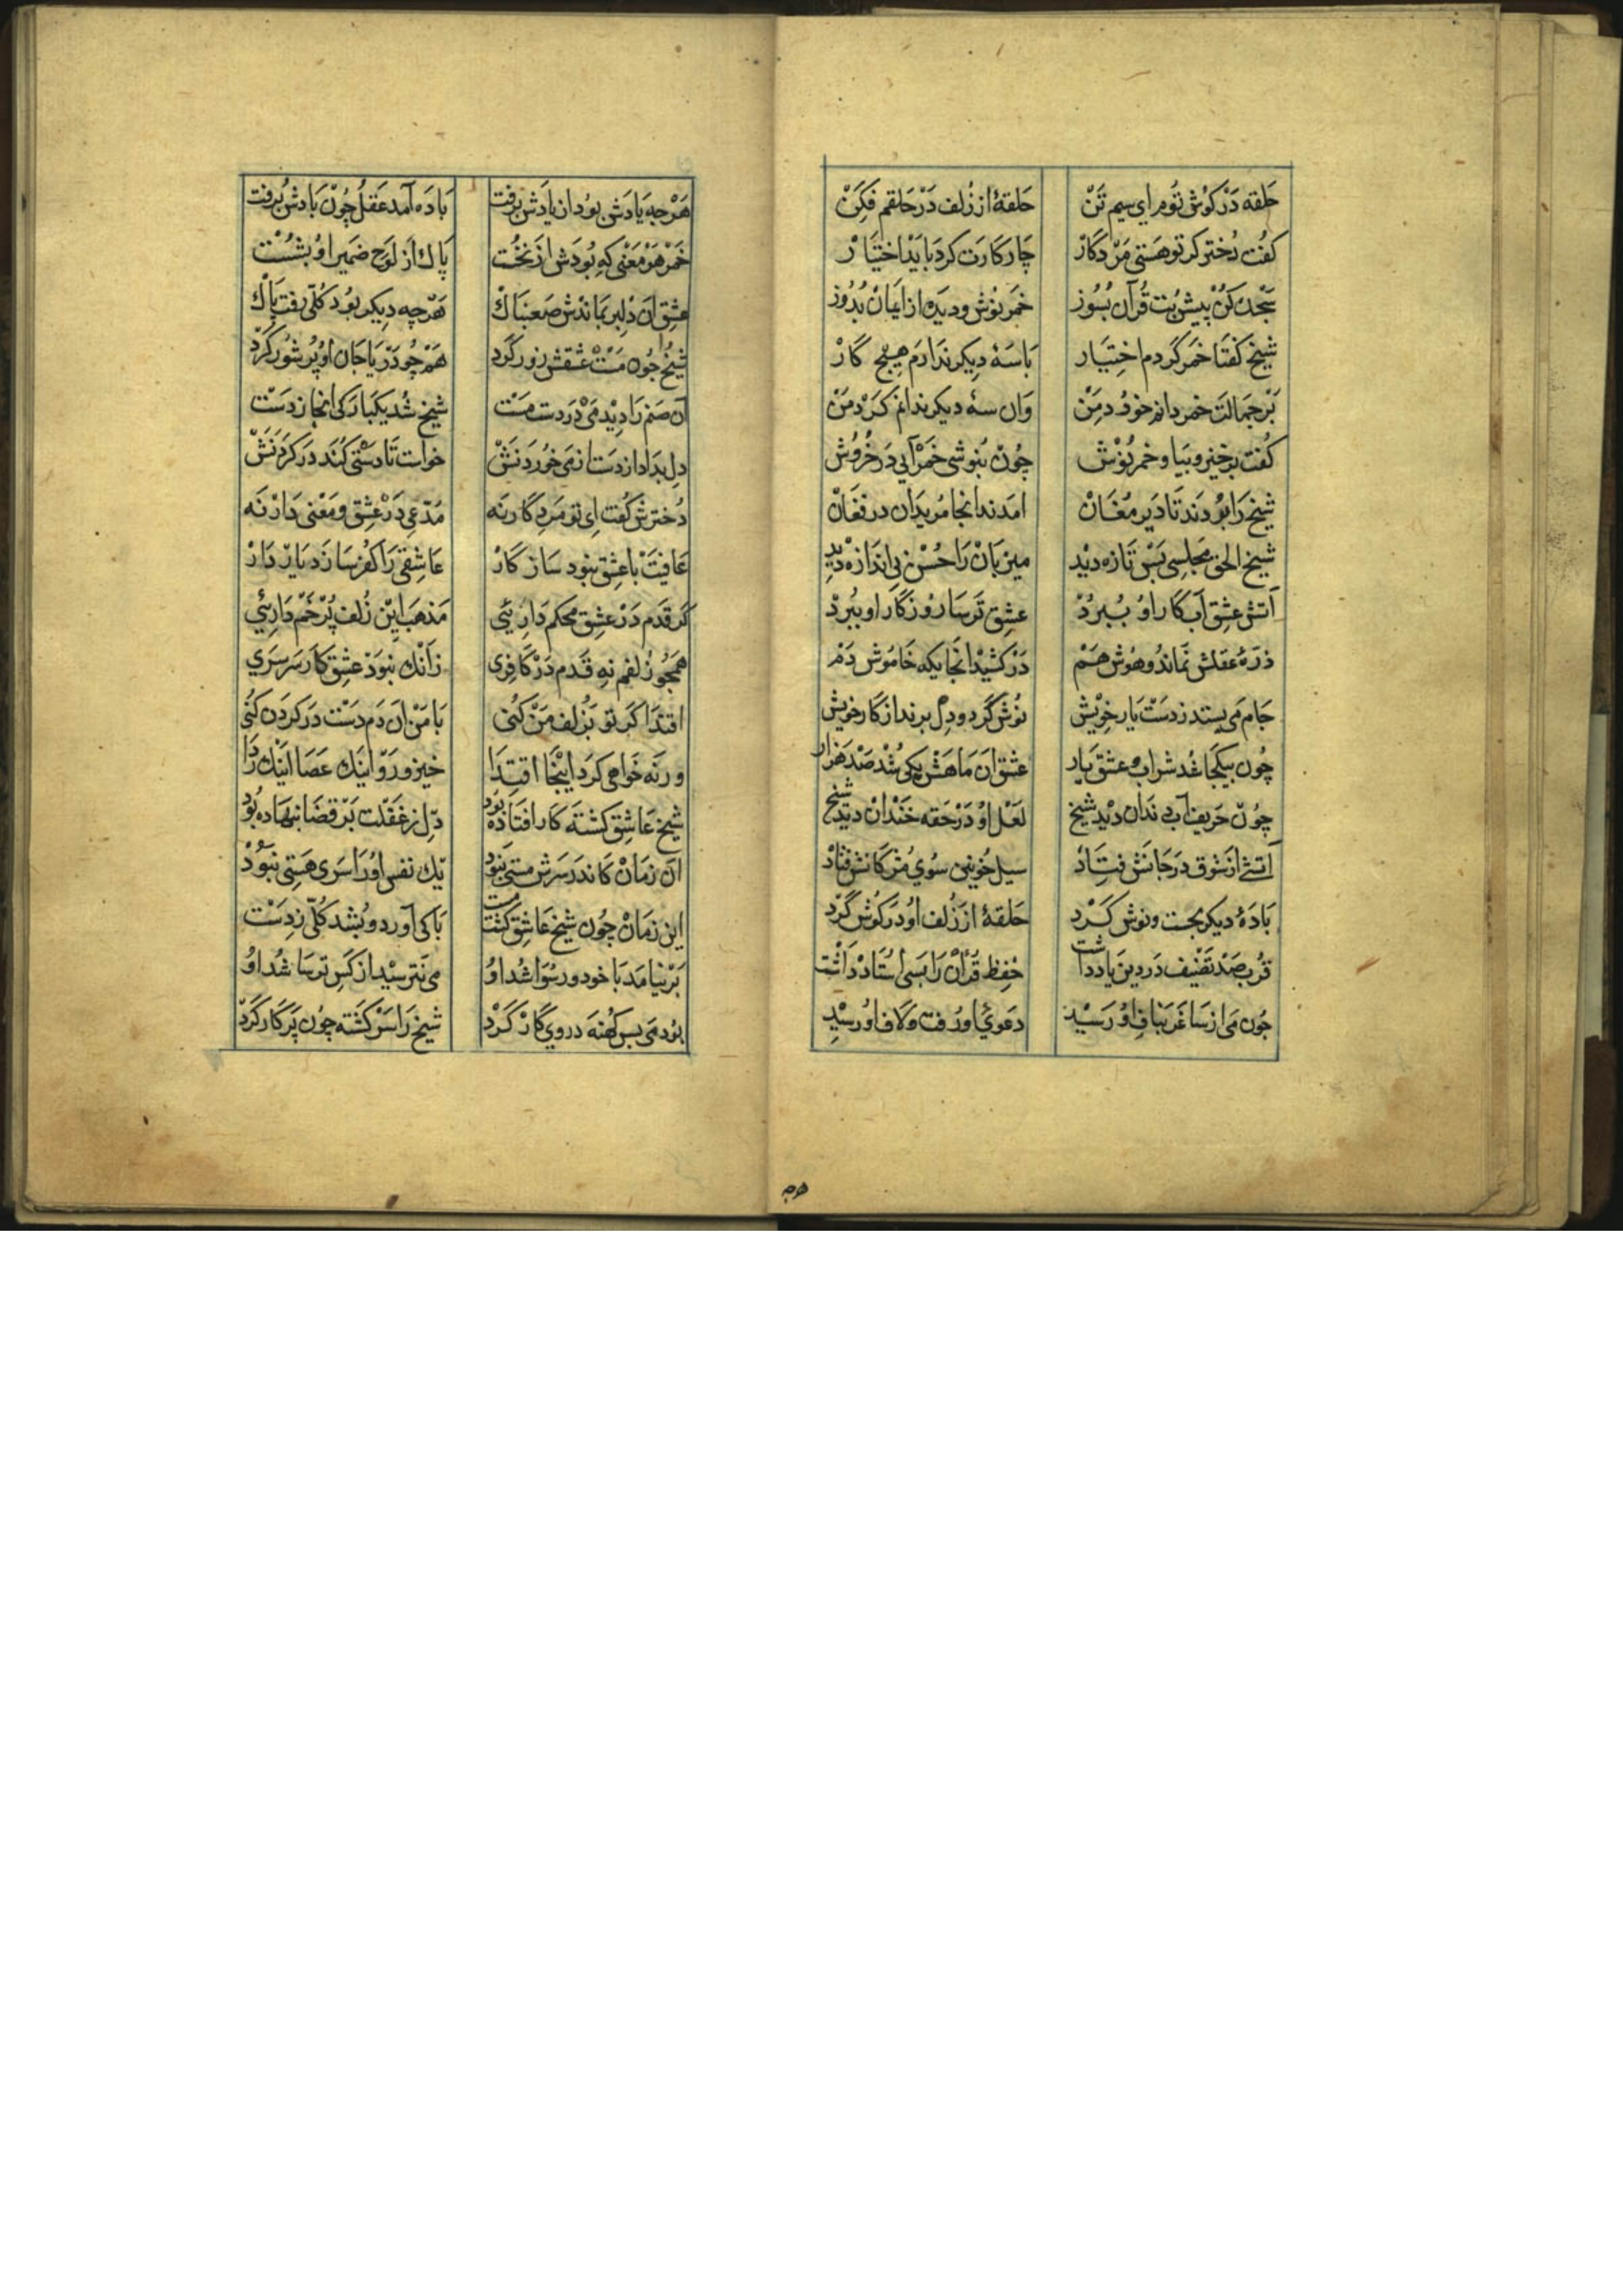 حَلقه دَرْ كوُش تُوم اي سيم تَنْ حَلقهٔ از زُلف دَرْ حَلقم فِكَنْ
كفُت دُختر كر تو هَستي مَرْد كارْ چَار كارَت كرد بَايَد اختيَارْ
سَجده كُنْ پيش بُت قُرآن بسُوز خمَر نوُش و ديَده از ايمانْ بدُوز
شيخ كفتَا خمَر كردم اختِيَار بَا سَهٔ ديكر ندَارَم هيچ كارْ
بَرْ جمَالت خمر دانم خوُرد من وان سهٔ ديكر ندانم كَرْد مَنْ
كُفت برخيز و بيَا و خمر نوُش چوُنْ بنوُشي خمْر آيي دَر خُروُش
شيخ رَا بُردَند تَا دَير مُغَانْ امَدند انجا مُريدَان در فغَانْ
شيخ الحق مجلسي بَسْ تَازه ديْد ميزبَانْ رَا حُسْن بي اندَازه ديْد
آتش عشِق آب كار اوُ ببُرْدْ عشِق ترسَا روُزكار او ببُردْ
ذرّهٔ عقلش نمَاند و هوُش هَمْ دَرْ كشيْد انجايكه خَاموُش دَمْ
جَام مي بستد ز دَسْت يَار خويْش نوُش كرد و دِل برند از كار خويش
چوُن بيكجا شد شراب و عشق يَار عشق ان مَاهَش يكي شُد صَد هَزار
چوُنْ حَريف آب دندَان ديْد شيخ لعَل اوُ دَرْ حقه خَنْدانْ ديد شيخ
آتشي از شوق در جَانش فتَادْ سيل خوُنين سوُي مُژكانش فتادْ
بَادهٔ ديكر بجست و نوش كَرْد حَلقهٔ از زُلف اوُ در كوُش كَرْد
قُرب صَد تصْنيف دَر دين ياد داشت حفِظ قُرآنْ رَا بَسي اُستَادْ دَاشْت
چوُن مي از سَاغَر بنَاف اوُ رَسيْد دعَوي او رفت و لاف او رسيْد
هرچه
هَرْ چه يَادَش بوُد از يادَش برفت بادَه آمد عَقلُ چوُنْ بَادش برُفت
خمْر هَرْ مَعْني كه بوُدَش از نخُست پاك از لوَح ضمَير اوُ بشُسْت
عشِق آن دلبر بمَاندْش صَعبنَاكْ هَرْ چه ديكر بوُد كلّي رفت پاكْ
شيخ چوُن مَسْت عشقش زور كَرد هَمْ چوُ دَرْيَا جَان اوُ پُر شوُر كَرْد
آن صنم رَا ديْد مَيْ دَر دست مَسْت شيخ شُد يكبَاركي آنجا ز دَسْت
دِل بدَاد از دَست از مي خوُردنَشْ خواست تَا دَستي كُند در كَردَنَشْ
دُخترش كُفت اي تو مَرد كار نَه مدّعي در عشِق و مَعْني دَارْ نَه
عَافيَتْ با عشِق نبوَد سَازكارْ عَاشِقي رَا كفر سَازَد يَادْ دَارْ
كَر قدَم دَرْ عشِق محكم دَارئي مَذهَب اين زُلف پُرْ خَمْ دَارئي
همچوُ زُلفم نِه قَدم دَرْ كافري زانْك نبوَدْ عشِق كار سَرسَري
اقتدَا كَر تو بزُلف مَنْ كني بَا مَنْ ان دَم دَسْت در كَردَن كُني
ور نَه خواهي كرد اينْجا اقتِدَا خيز و رَوْ اينَك عَصَا اينَك رِدَا
شيخ عَاشِق كشتَه كار افتاده بُود دِل ز غَفلت بَرْ قضَا بنهاده بُود
آن زمَانْ كاندَر سَرَش مَستي نبوُد يك نفس اوُ رَا سَري هَستي نبوُدْ
اين زمَانْ چوُن شيخ عَاشِق كشت مست بَاكي آورد و بشُد كُلّي ز دَسْت
بَر نيامَد بَا خود و رسْوا شُد اوُ مي نترسيْد از كَسِ ترسَا شُد اوُ
بوُد مَي بس كهنَه در وي كارْ كَرْد شيخ رَا سَرْكشته چوُن پَركار كَرْدْ